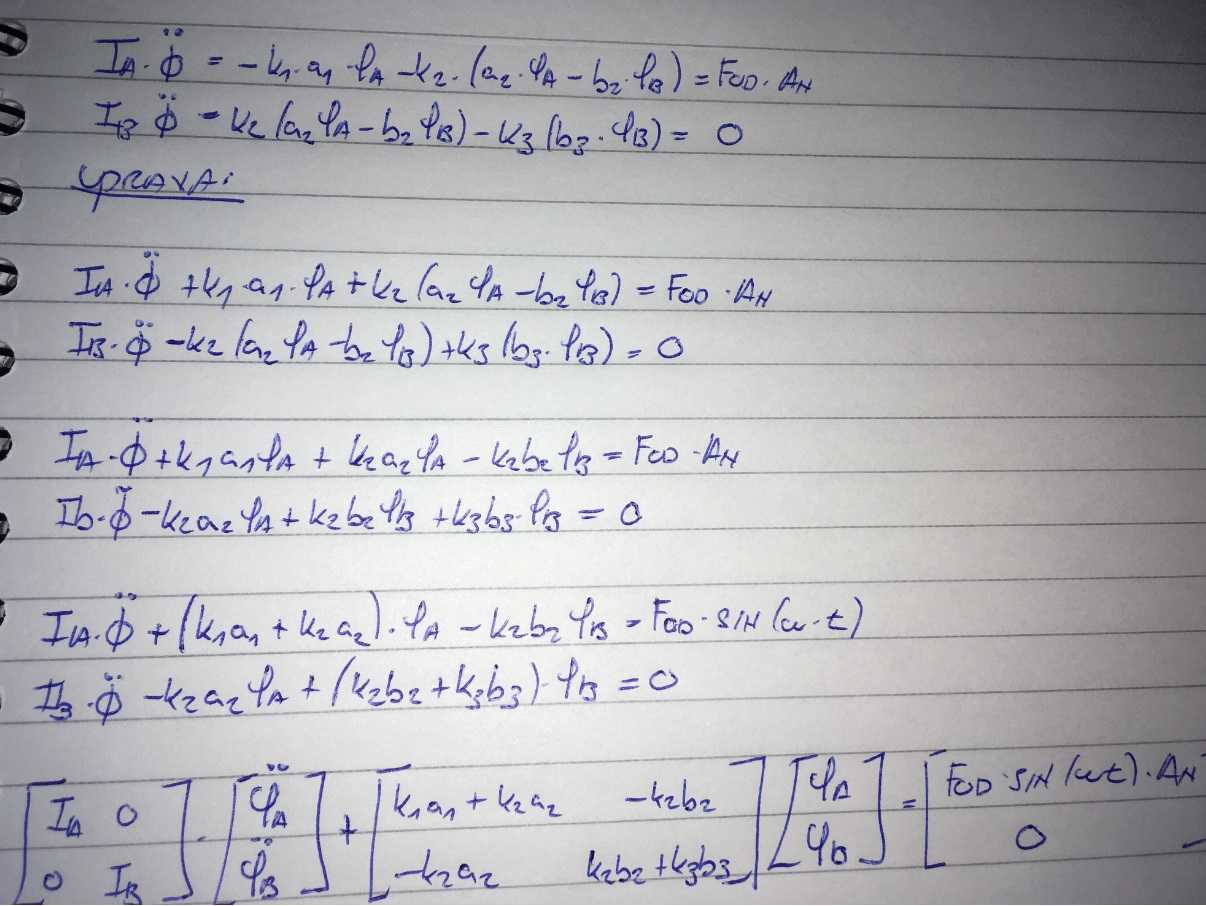 I_A · φ̈ = -k₁·a₁·φ_A - k₂·(a₂·φ_A - b₂·φ_B) = F_OD · A_N
I_B φ̈ - k₂(a₂φ_A - b₂φ_B) - k₃(b₃·φ_B) = 0
ÚPRAVA:
I_A · φ̈ + k₁·a₁·φ_A + k₂(a₂φ_A - b₂φ_B) = F_OD · A_N
I_B · φ̈ - k₂(a₂φ_A - b₂φ_B) + k₃(b₃·φ_B) = 0
I_A · φ̈ + k₁a₁φ_A + k₂a₂φ_A - k₂b₂φ_B = F_OD · A_N
I_b · φ̈ - k₂a₂φ_A + k₂b₂φ_B + k₃b₃·φ_B = 0
I_A · φ̈ + (k₁a₁ + k₂a₂)·φ_A - k₂b₂φ_B = F_OD · SIN(ω·t)
I_B · φ̈ - k₂a₂φ_A + (k₂b₂ + k₃b₃)·φ_B = 0
[I_A 0; 0 I_B] · [φ̈_A; φ̈_B] + [k₁a₁ + k₂a₂ -k₂b₂; -k₂a₂ k₂b₂ + k₃b₃] [φ_A; φ_B] = [F_OD · SIN(ωt) · A_N; 0]